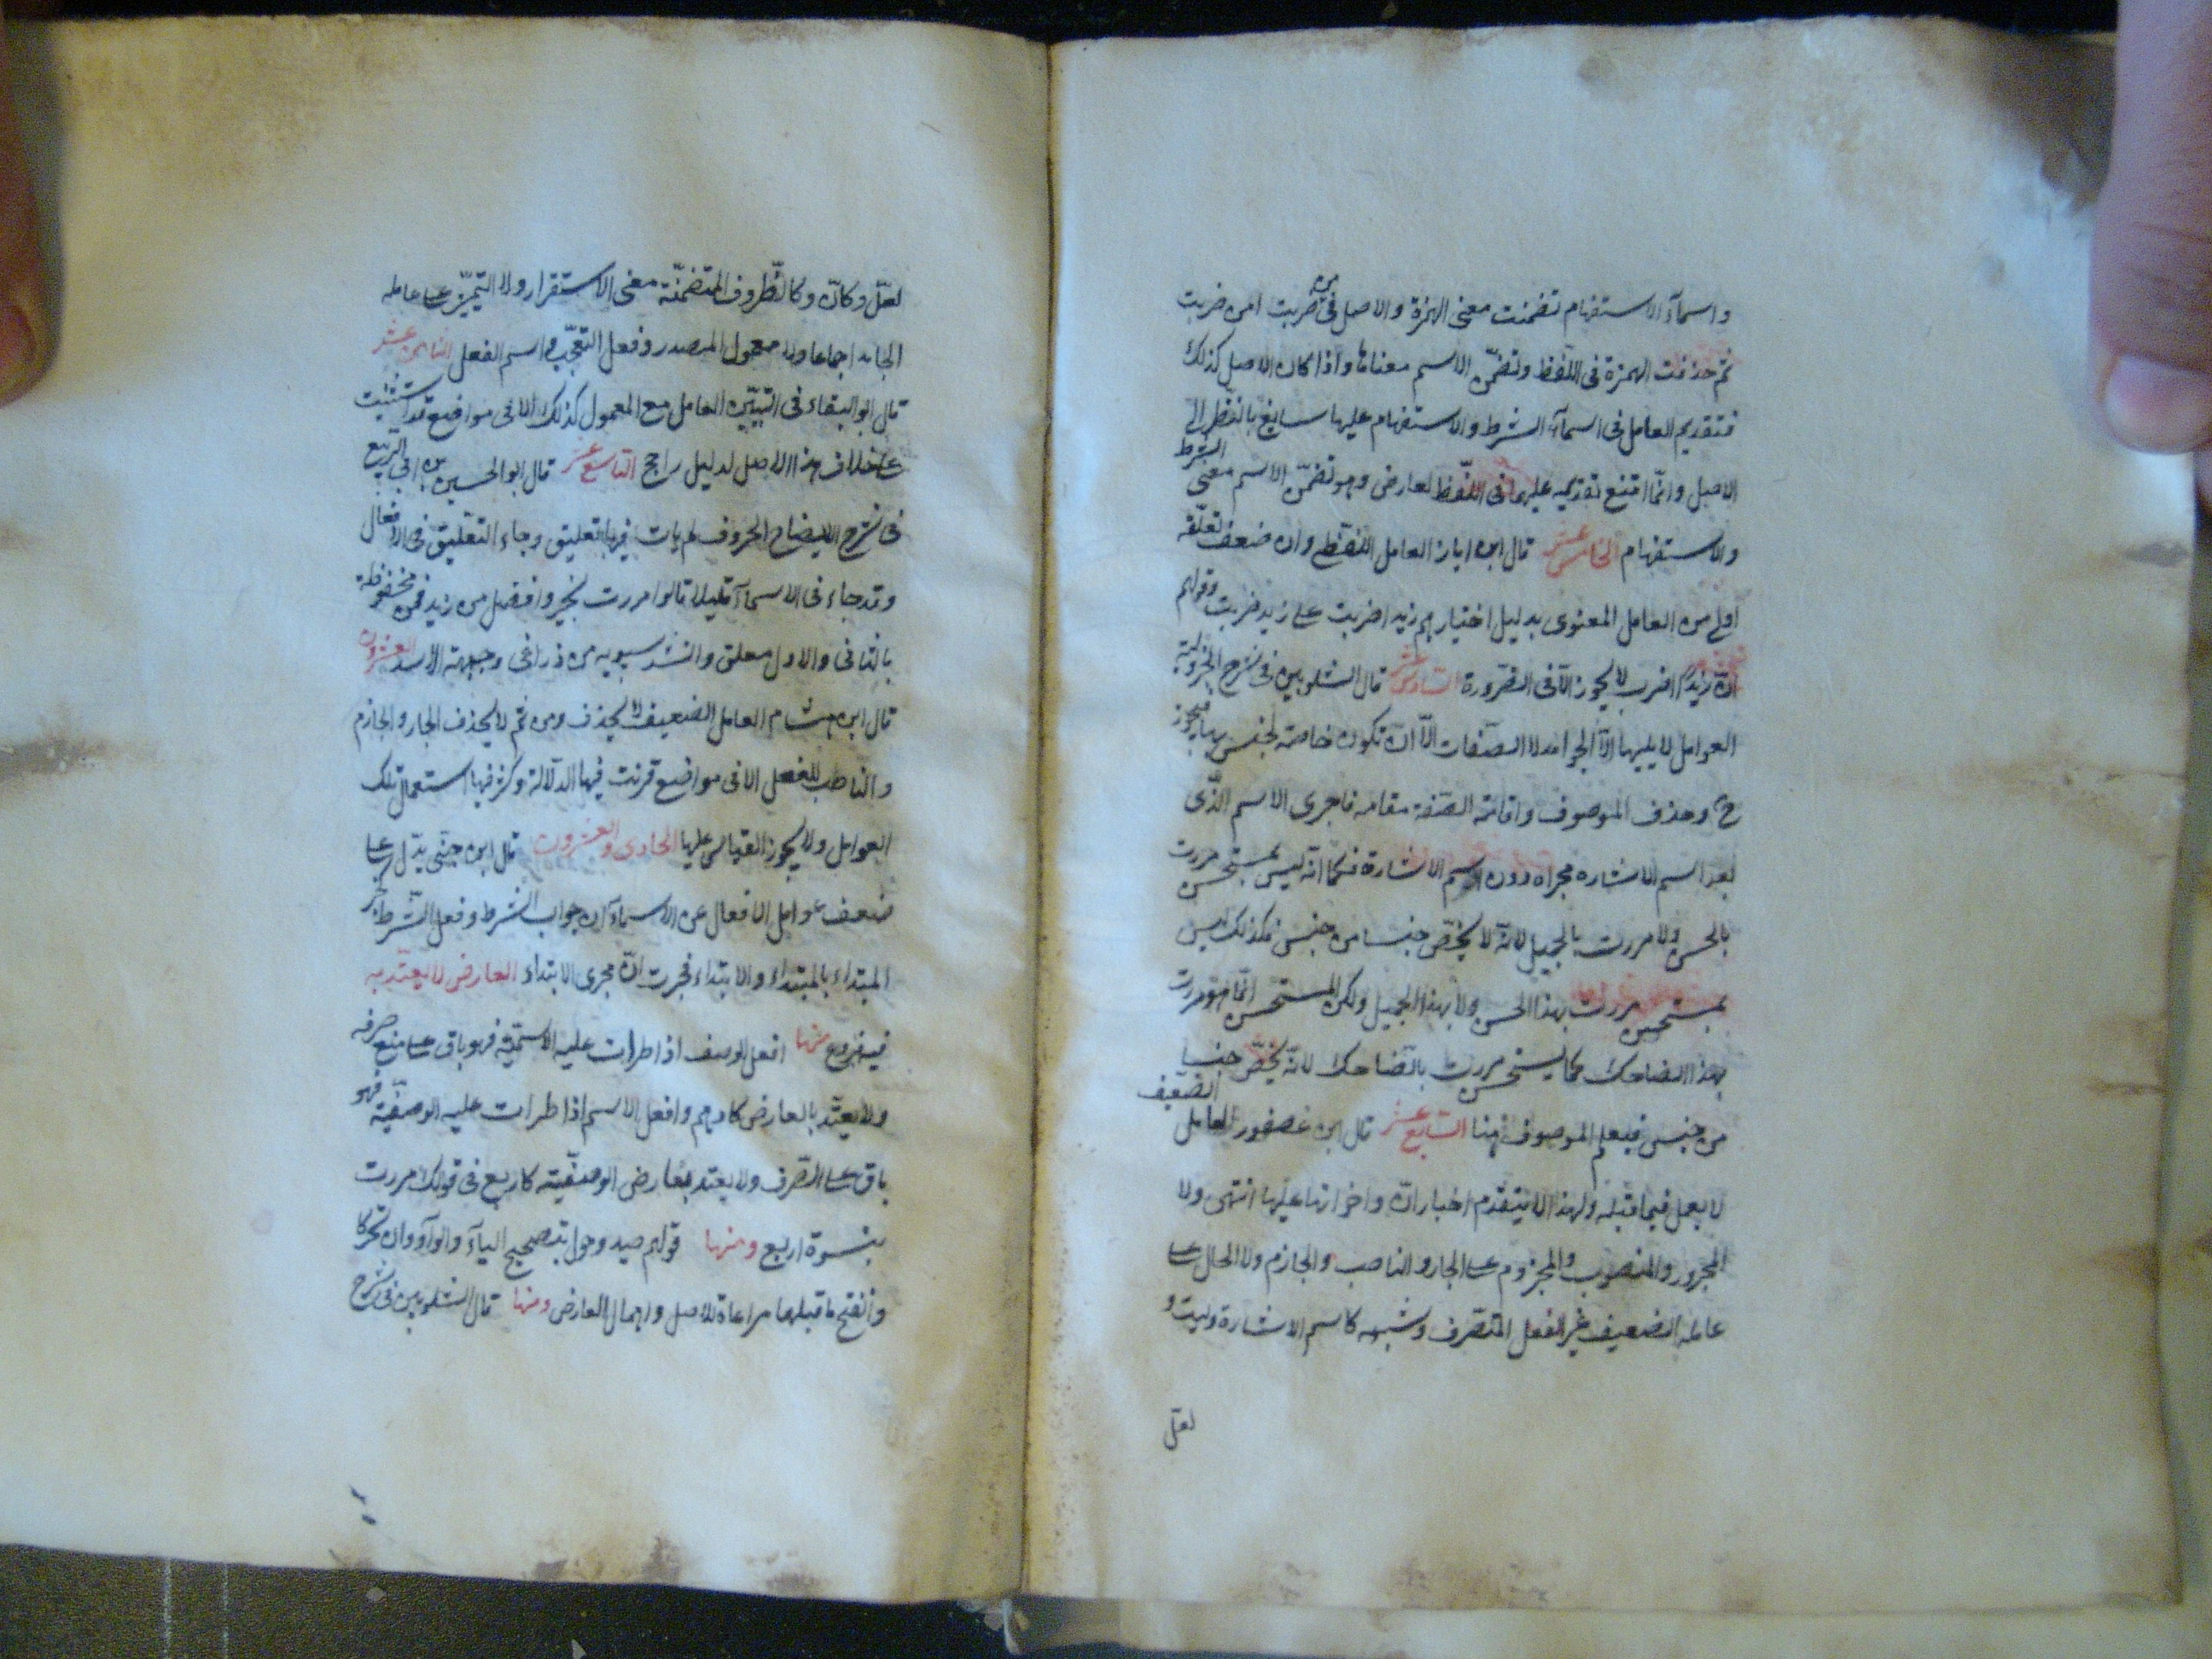 واسمآء الاستفهام تضمنت معنى الهمزة والاصل في من ضربت امن ضربت
ثم حذفت الهمزة في اللفظ وتضمن الاسم معناها واذا كان الاصل كذلك
فتقديم العامل في اسمآء الشرط والاستفهام عليها سايغ بالنظر الى
الاصل وانما امتنع تقديمه عليها في اللفظ لعارض وهو تضمن الاسم معنى الشرط
والاستفهام الخامس عشر قال ابن اياز العامل اللفظي وان ضعف تعلقه
اولى من العامل المعنوى بدليل اختيارهم زيدا ضربت على زيد ضربت وقولهم
ان زيدا اضرب لا يجوز الا في الضرورة السادس عشر قال الشلوبين في شرح الجزولية
العوامل لا يليها الا الجوامد لا الصفات الا ان تكون خاصة لجنس بها فيجوز
ح وحذف الموصوف واقامة الصفة مقامه فاجرى الاسم الذى
بعد اسم الاشاره مجراه دون اسم الاشارة فكما انه ليس بمستحسن مررت
بالحسن ولا مررت بالجميل لانه لا يخص جنسا من جنس فكذلك ليس
بمستحسن مررت بهذا الحسن ولا بهذا الجميل ولكن المستحسن انما هو مررت
بهذا الضاحك كما يستحسن مررت بالضاحك لانه يخص جنسا
من جنس فيعلم الموصوف هنا السابع عشر قال ابن عصفور العامل الضعيف
لا يعمل فيما قبله ولهذا لا يتقدم اخبار ان واخواتها عليها انتهى ولا
المجرور والمنصوب والمجزوم على الجار والناصب والجازم ولا الحال على
عامله الضعيف غير الفعل المتصرف وشبهه كاسم الاشارة وليت و
لعل
لعل وكان وكالظروف المتضمنة معنى الاستقرار ولا التمييز على عامله
الجامد اجماعا ولا معمول المصدر وفعل التعجب واسم الفعل الثامن عشر
قال ابو البقاء في التبيين العامل مع المعمول كذلك الا في مواضع قد استثنيت
على خلاف هذا الاصل لدليل راجح التاسع عشر قال ابو الحسين بن ابي الربيع
في شرح الايضاح الحروف لم يات فيها تعليق وجاء التعليق في الافعال
وقد جاء في الاسمآء قليلا قالوا مررت بخير وافضل من زيد فمن مخفوظة
بالثاني والاول معلق وانشد سيبويه بين ذراعى وجبهة الاسد العشرون
قال ابن هشام العامل الضعيف لا يحذف ومن ثم لا يحذف الجار والجازم
والناصب للفعل الا في مواضع قويت فيها الدلالة وكثر فيها استعمال تلك
العوامل ولا يجوز القياس عليها الحادى والعشرون قال ابن جنى يدل على
ضعف عوامل الافعال عن الاسمآء ان جواب الشرط وفعل الشرط
المبتداء بالمبتداء والابتداء فجرت ان مجرى الابتداء العارض لا يعتد به
فيه فروع منها افعل الوصف اذا طرات عليه الاسمية فهو باق على منع صرفه
ولا يعتد بالعارض كادهم وافعل الاسم اذا طرات عليه الوصفية فهو
باق على الصرف ولا يعتد بعارض الوصفية كاربع في قولك مررت
بنسوة اربع ومنها قولهم صيد وحول بتصحيح اليآء والوآو وان تحركا
وانفتح ما قبلهما مراعاة للاصل واهمال العارض ومنها قال الشلوبين في شرح